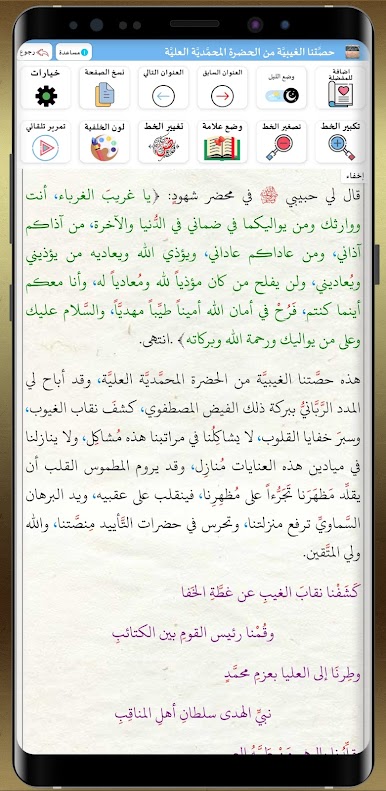 حصَّتنا الغيبيَّة من الحضرة المحمَّديَّة العليَّة
مساعدة
رجوع
اضافة للمفضلة
وضع الليل
العنوان السابق
العنوان التالي
نسخ الصفحة
خيارات
تكبير الخط
تصغير الخط
وضع علامة
تغيير الخط
لون الخلفية
تمرير تلقائي
خفاء
قال لي حبيبي ﷺ في محضر شهودٍ: ﴿يا غريبَ الغرباء، أنت
ووارثك ومن يواليكما في ضماني في الدُّنيا والآخرة، من آذاكم
آذاني، ومن عاداكم عاداني، ويؤذي الله ويعاديه من يؤذيني
ويُعاديني، ولن يفلح من كان مؤذياً لله ومُعادياً له، وأنا معكم
أينما كنتم، فَرُحْ في أمان الله أميناً طيِّباً مهديَّاً، والسَّلام عليك
وعلى من يواليك ورحمة الله وبركاته﴾ .انتهى.
هذه حصَّتنا الغيبيَّة من الحضرة المحمَّديَّة العليَّة، وقد أباح لي
المدد الرَّبَّانيُّ ببركة ذلك الفيض المصطفوي، كشفَ نقاب الغيوب،
وسبرَ خفايا القلوب، لا يشاكِلُنا في مراتبنا هذه مُشاكِل، ولا ينازلنا
في ميادين هذه العنايات مُنازِل، وقد يروم المطموس القلب أن
يقلِّد مَظهَرَنا تَجَرُّءاً على مُظهِرِنا، فينقلب على عقبيه، ويد البرهان
السَّماويِّ ترفع منزلتنا، وتحرس في حضرات التَّأييد مِنصَّتنا، والله
ولي المتَّقين.
كَشَفْنا نقابَ الغيبِ عن غطَّةِ الخَفا
وقُمْنا رئيس القومِ بين الكتائبِ
وطِرنَا إلى العليا بعزمِ محمَّدٍ
نبيِّ الهدى سلطانِ أهلِ المناقِبِ